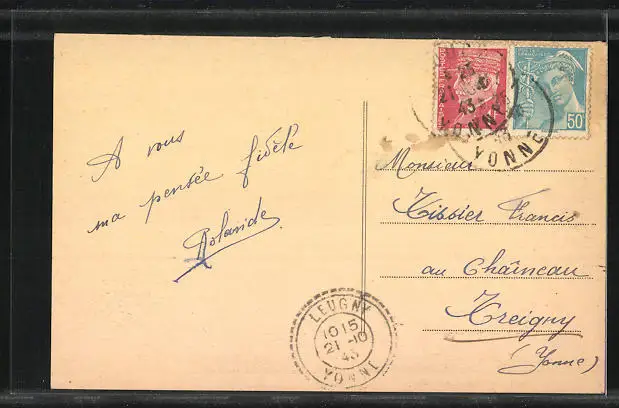 A vous
ma pensée fidèle
Rolande
Monsieur
Tissier Francis
au Chaîneau
Treigny
(Yonne)
50
43
YONNE
YONNE
LEUGNY
10 15
21 -10
43
YONNE